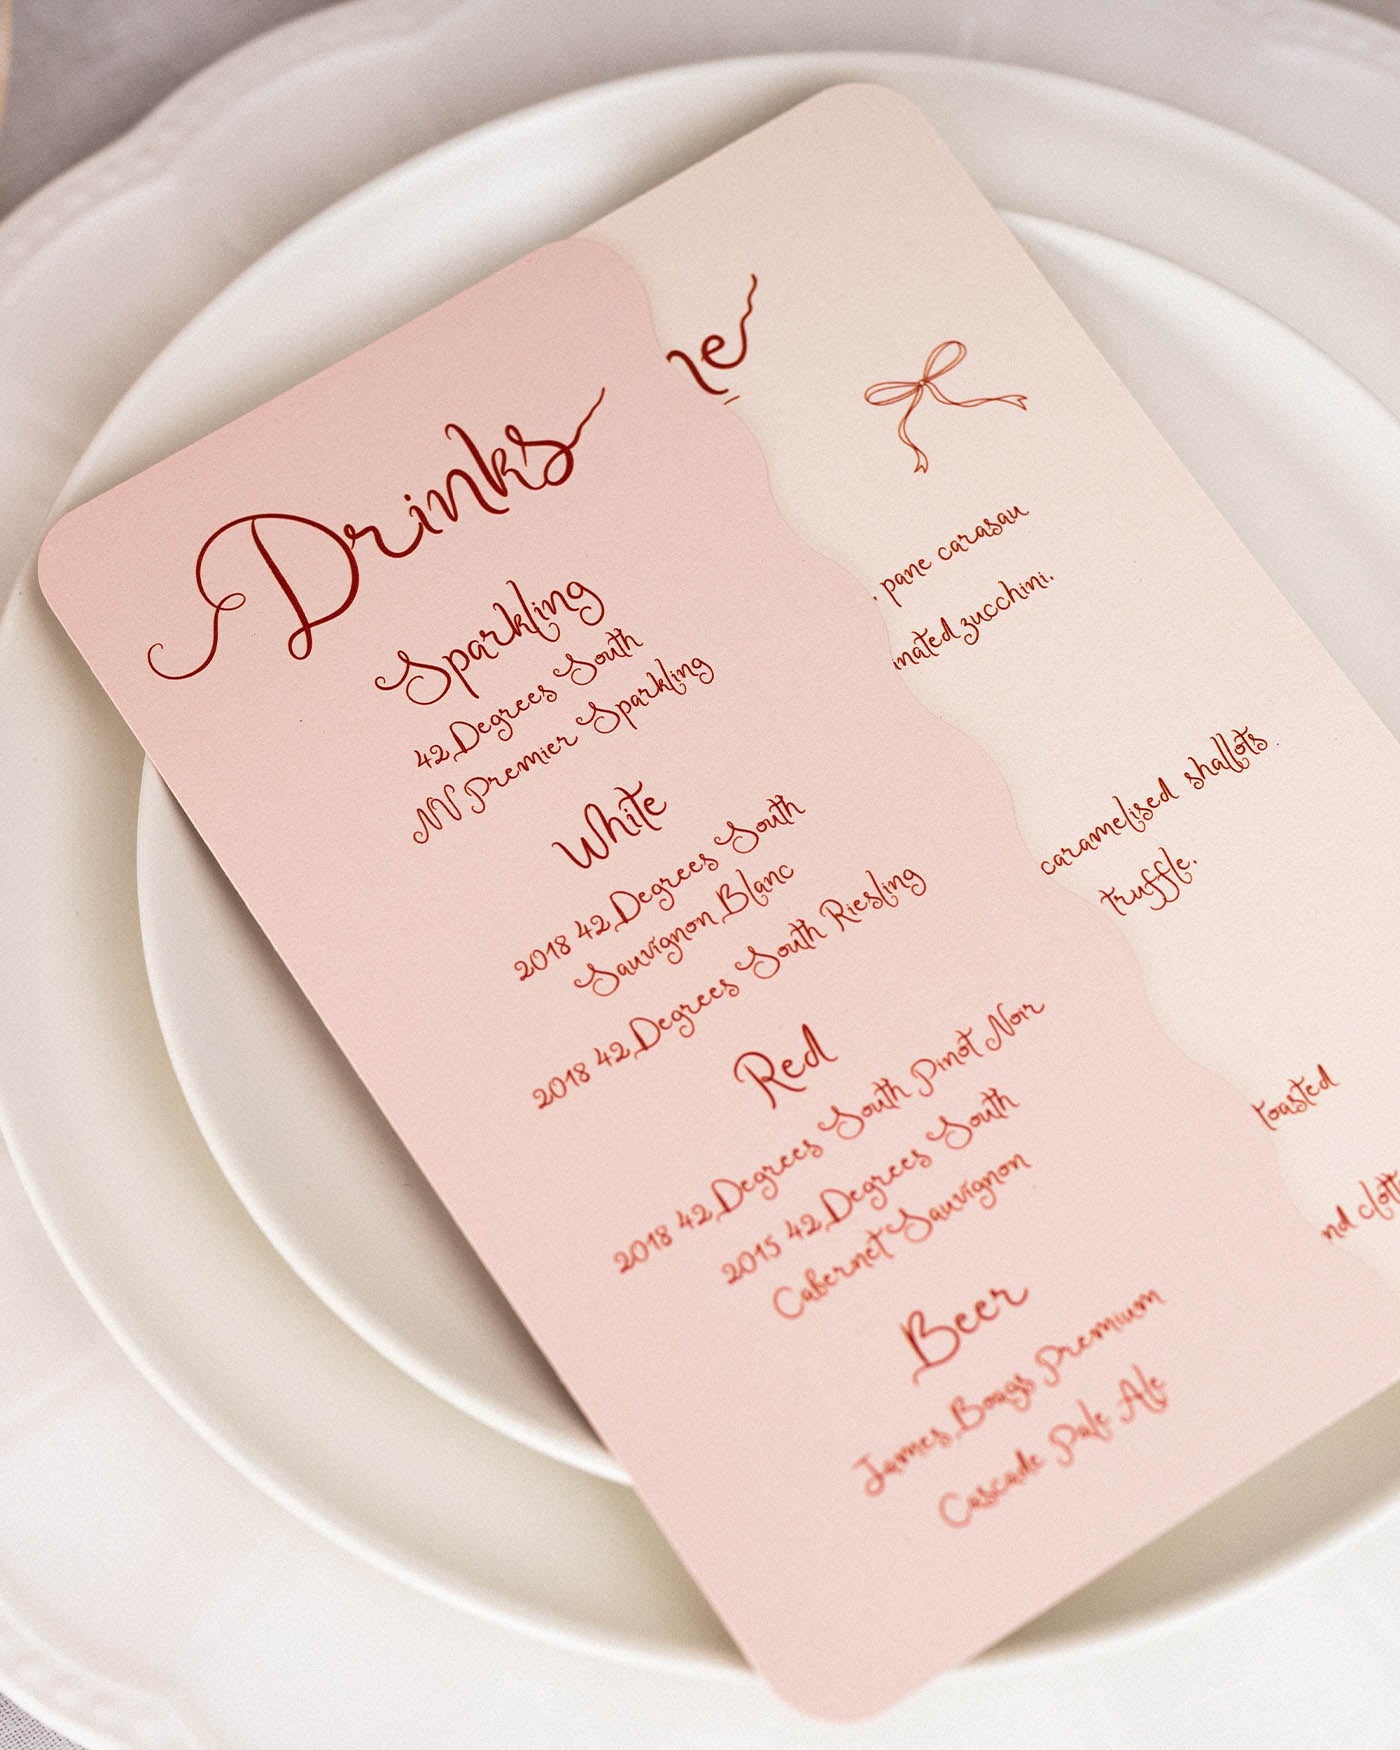 Drinks
Sparkling
42 Degrees South
NV Premier Sparkling
White
2018 42 Degrees South
Sauvignon Blanc
2018 42 Degrees South Riesling
Red
2018 42 Degrees South Pinot Noir
2015 42 Degrees South
Cabernet Sauvignon
Beer
James Boags Premium
Cascade Pale Ale
, pane carasau
mated zucchini.
caramelised shallots
truffle.
toasted
nd clott